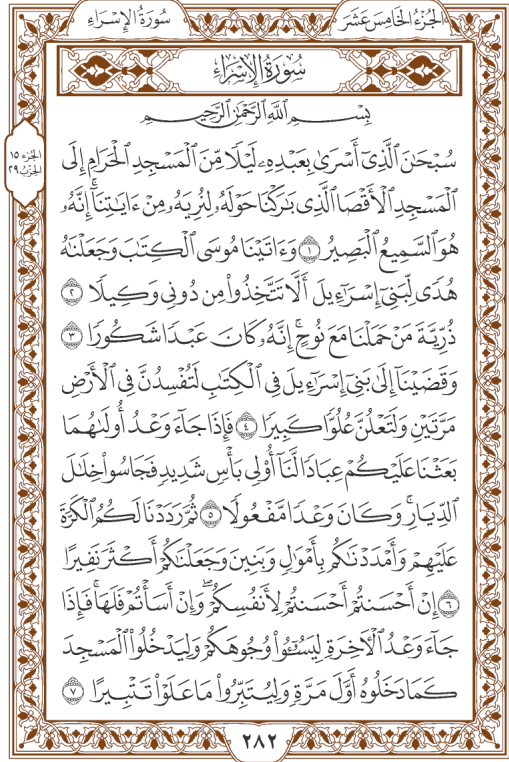 الجُزْءُ الخَامِسَ عَشَرَ
سُورَةُ الإِسْرَاءِ
سُورَةُ الإِسْرَاءِ
بِسْمِ اللَّهِ الرَّحْمَٰنِ الرَّحِيمِ
سُبْحَٰنَ ٱلَّذِيٓ أَسْرَىٰ بِعَبْدِهِۦ لَيْلًا مِّنَ ٱلْمَسْجِدِ ٱلْحَرَامِ إِلَى
ٱلْمَسْجِدِ ٱلْأَقْصَا ٱلَّذِي بَٰرَكْنَا حَوْلَهُۥ لِنُرِيَهُۥ مِنْ ءَايَٰتِنَآۚ إِنَّهُۥ
هُوَ ٱلسَّمِيعُ ٱلْبَصِيرُ ١ وَءَاتَيْنَا مُوسَى ٱلْكِتَٰبَ وَجَعَلْنَٰهُ
هُدًى لِّبَنِيٓ إِسْرَٰٓءِيلَ أَلَّا تَتَّخِذُوا۟ مِن دُونِي وَكِيلًا ٢
ذُرِّيَّةَ مَنْ حَمَلْنَا مَعَ نُوحٍۚ إِنَّهُۥ كَانَ عَبْدًا شَكُورًا ٣
وَقَضَيْنَآ إِلَىٰ بَنِيٓ إِسْرَٰٓءِيلَ فِي ٱلْكِتَٰبِ لَتُفْسِدُنَّ فِي ٱلْأَرْضِ
مَرَّتَيْنِ وَلَتَعْلُنَّ عُلُوًّا كَبِيرًا ٤ فَإِذَا جَآءَ وَعْدُ أُولَىٰهُمَا
بَعَثْنَا عَلَيْكُمْ عِبَادًا لَّنَآ أُو۟لِي بَأْسٍ شَدِيدٍ فَجَاسُوا۟ خِلَٰلَ
ٱلدِّيَارِۚ وَكَانَ وَعْدًا مَّفْعُولًا ٥ ثُمَّ رَدَدْنَا لَكُمُ ٱلْكَرَّةَ
عَلَيْهِمْ وَأَمْدَدْنَٰكُم بِأَمْوَٰلٍ وَبَنِينَ وَجَعَلْنَٰكُمْ أَكْثَرَ نَفِيرًا
٦ إِنْ أَحْسَنتُمْ أَحْسَنتُمْ لِأَنفُسِكُمْۖ وَإِنْ أَسَأْتُمْ فَلَهَاۚ فَإِذَا
جَآءَ وَعْدُ ٱلْءَاخِرَةِ لِيَسُـۥٓـُٔوا۟ وُجُوهَكُمْ وَلِيَدْخُلُوا۟ ٱلْمَسْجِدَ
كَمَا دَخَلُوهُ أَوَّلَ مَرَّةٍ وَلِيُتَبِّرُوا۟ مَا عَلَوْا۟ تَتْبِيرًا ٧
الجُزْءُ ١٥
الحِزْبُ ٢٩
٢٨٢